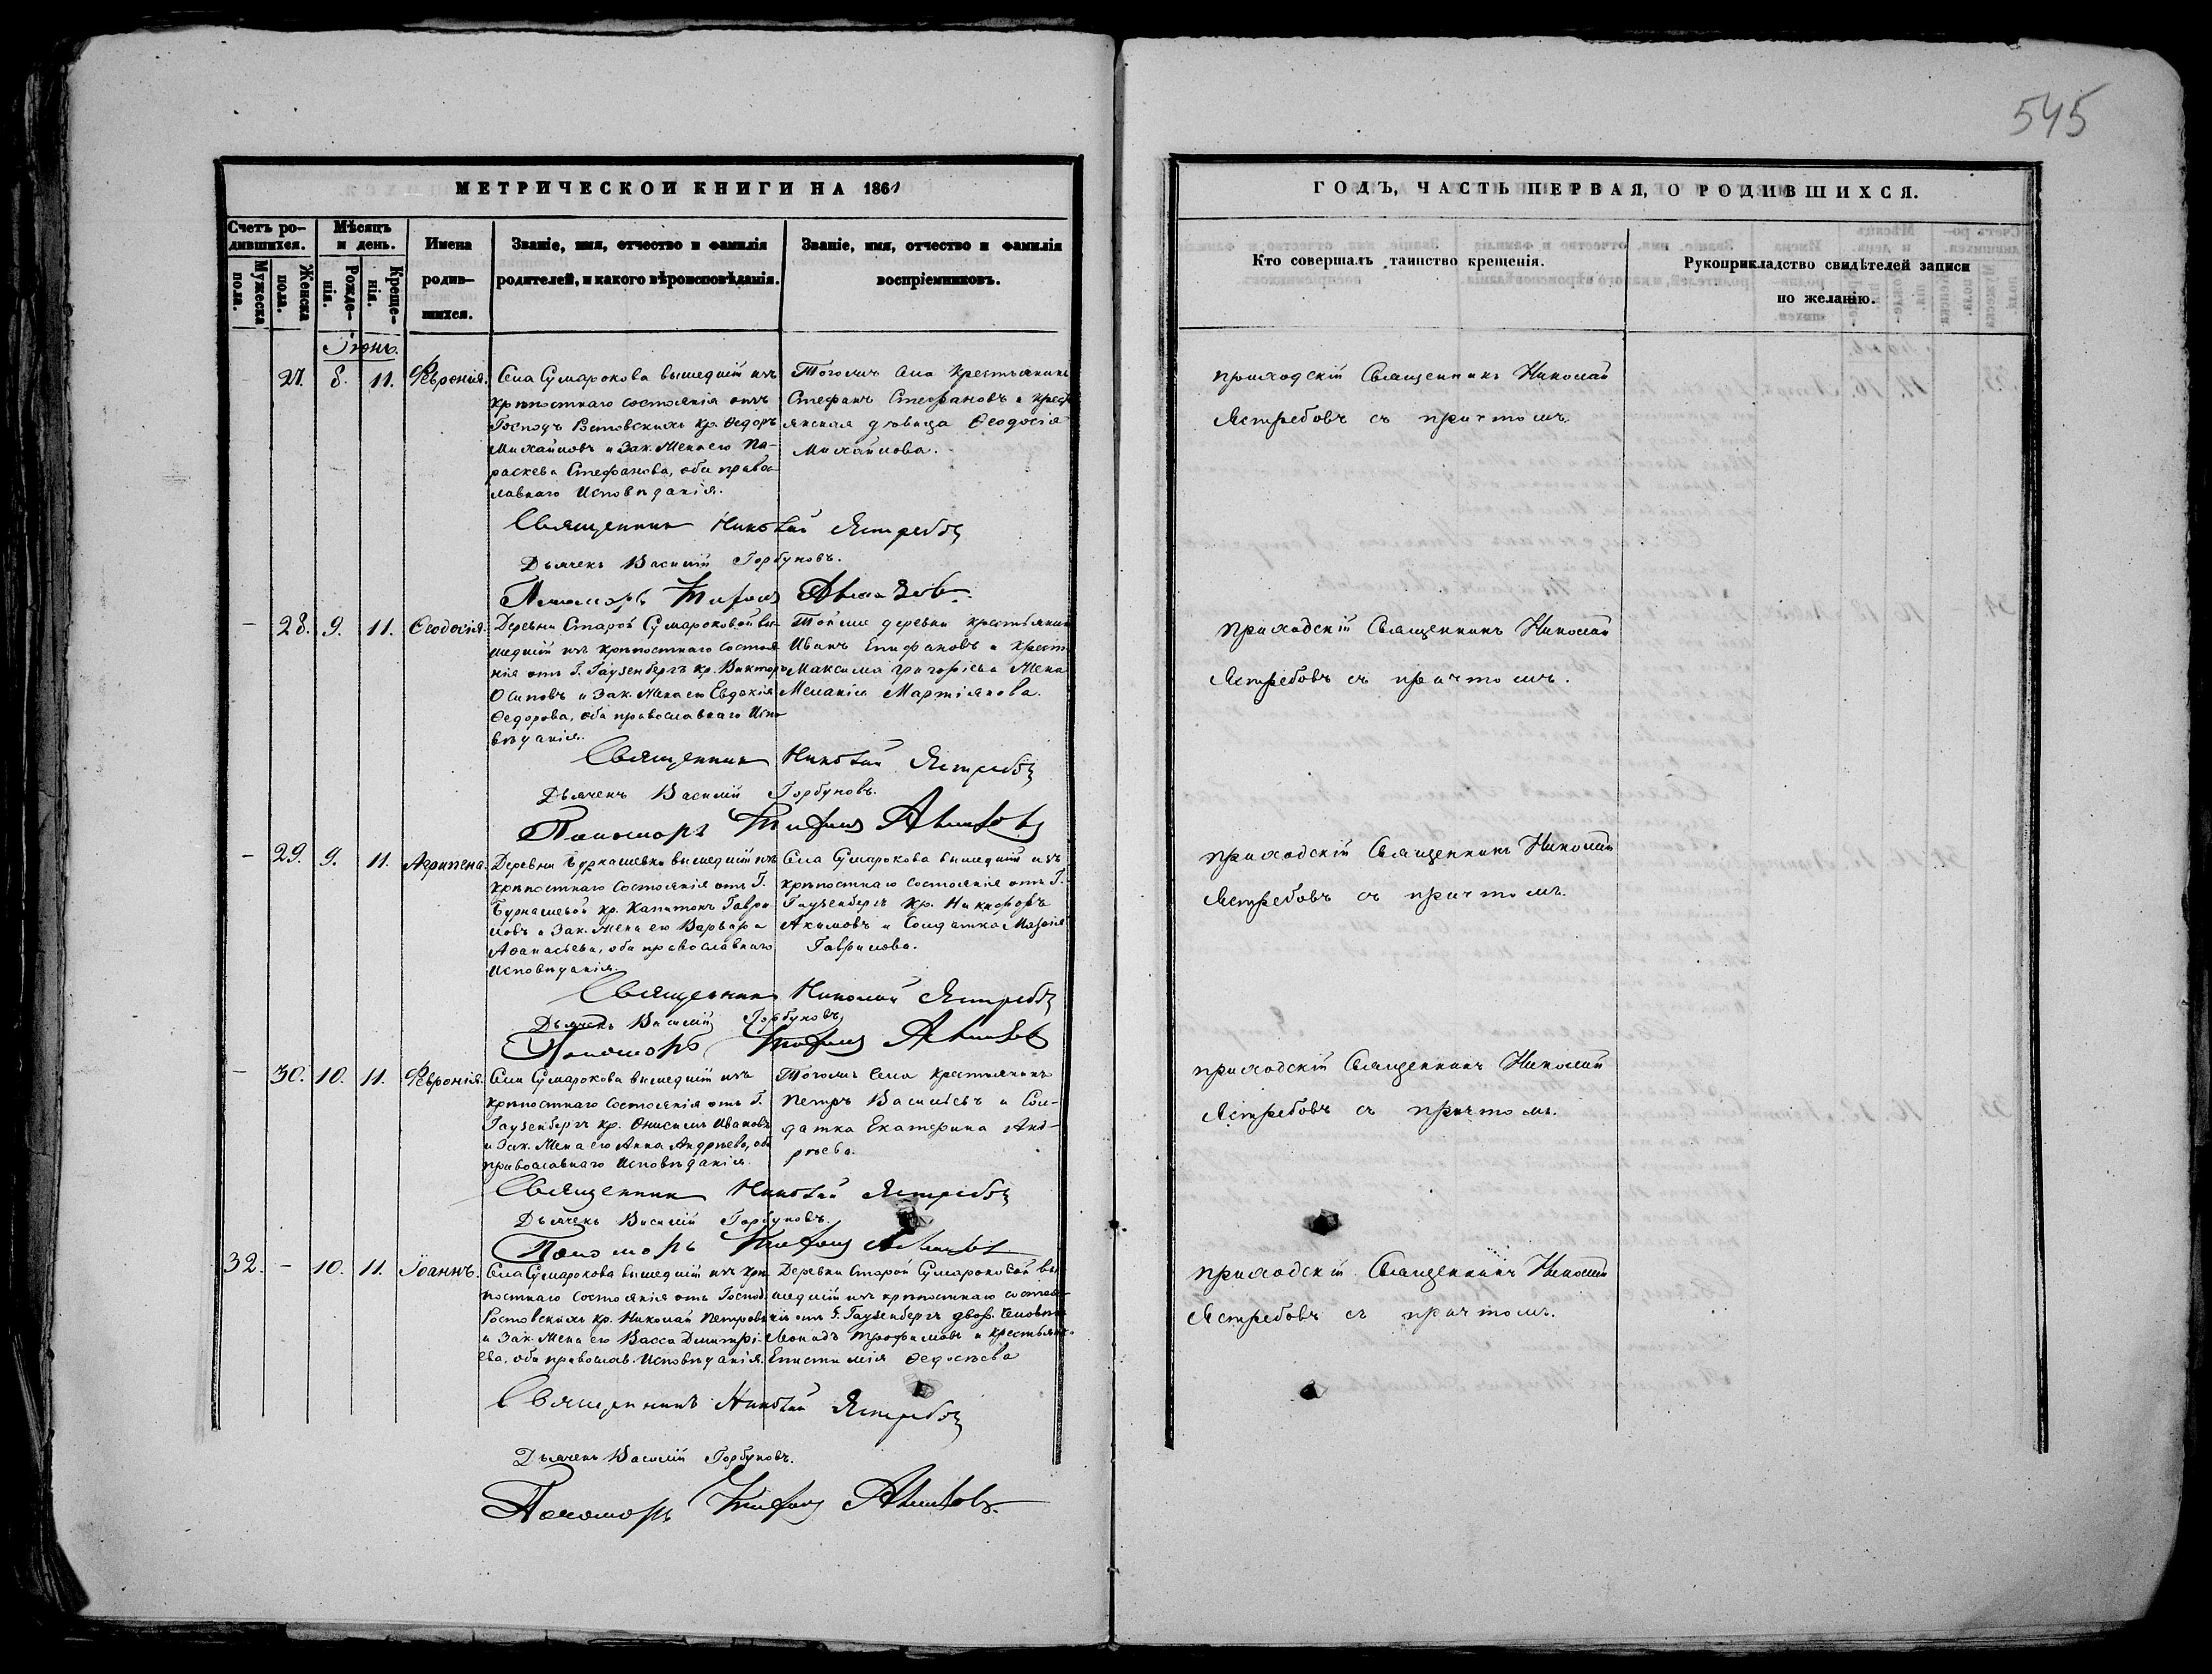 545
МЕТРИЧЕСКОЙ КНИГИ НА 1861
ГОДЪ, ЧАСТЬ ПЕРВАЯ, О РОДИВШИХСЯ.
Счетъ ро-
дившихся.
Мужеска
пола.
Женска
пола.
Мѣсяцъ
и день.
Рожде-
нія.
Креще-
нія.
Имена
родив-
шихся.
Званіе, имя, отчество и фамилія
родителей, и какого вѣроисповѣданія.
Званіе, имя, отчество и фамилія
воспріемниковъ.
Кто совершалъ таинство крещенія.
Рукоприкладство свидѣтелей записи
по желанію.
Іюнь.
- 27. 8. 11. Февронія.
Села Сумарокова вышедшій изъ
крѣпостнаго состоянія отъ
Господъ Ростовскихъ кр. Ѳедоръ
Михайловъ и Зак. Жена его Па-
раскева Стефанова, оба право-
славнаго Исповѣданія.
Тогожъ Села Крестьянинъ
Стефанъ Стефановъ и крест
янская дѣвица Ѳеодосія
Михайлова.
приходскій Священникъ Николай
Ястребовъ съ причтомъ.
Священникъ Николай Ястребовъ
Дьячекъ Василій Горбуновъ.
Пономарь Алмазовъ.
- 28. 9. 11. Ѳеодосія.
Деревни Старой Сумароковой вы-
шедшій изъ крѣпостнаго состоя
нія отъ Г. Гаузенбергъ кр. Викторъ
Осиповъ и Зак. Жена его Евдокія
Ѳедорова, оба православнаго Испо
вѣданія.
Тойже деревни крестьянинъ
Иванъ Епифановъ и крест
Максима Григорьева Жена
Меланія Мартіянова.
приходскій Священникъ Николай
Ястребовъ съ причтомъ.
Священникъ Николай Ястребовъ
Дьячекъ Василій Горбуновъ.
Пономарь Алмазовъ
- 29. 9. 11. Агрипена.
Деревни Бурнашевки вышедшій изъ
крѣпостнаго состоянія отъ Г.
Бурнашевой кр. Капитонъ Гаври
ловъ и Зак. Жена его Варвара
Аѳанасьева, оба православнаго
Исповѣданія.
Села Сумарокова вышедшій изъ
крѣпостнаго состоянія отъ Г.
Гаузенбергъ Кр. Никифоръ
Акимовъ и Солдатка Марѳа
Гаврилова.
приходскій Священникъ Николай
Ястребовъ съ причтомъ.
Священникъ Николай Ястребовъ
Дьячекъ Василій Горбуновъ
Пономарь Алмазовъ
- 30. 10. 11. Февронія.
Села Сумарокова вышедшій изъ
крѣпостнаго состоянія отъ Г.
Гаузенбергъ кр. Онисимъ Ивановъ
и Зак. Жена его Анна Андреева, оба
православнаго Исповѣданія.
Тогожъ Села крестьянинъ
Петръ Васильевъ и Сол-
датка Екатерина Анд-
рѣева.
приходскій Священникъ Николай
Ястребовъ съ причтомъ.
Священникъ Николай Ястребовъ
Дьячекъ Василій Горбуновъ.
Пономарь Алмазовъ
32. - 10. 11. Іоаннъ.
Села Сумарокова вышедшій изъ крѣ
постнаго состоянія отъ Господ.
Ростовскихъ кр. Николай Петровъ
и Зак. Жена его Васса Дмитрі-
ева, оба православ. Исповѣданія.
Деревни Старой Сумароковой вы
шедшій изъ крѣпостнаго состоя-
нія отъ Г. Гаузенбергъ двор.
Леонидъ Трофимовъ и крестьянк.
Епистимія Ѳедосѣева
приходскій Священникъ Николай
Ястребовъ съ причтомъ.
Священникъ Николай Ястребовъ
Дьячекъ Василій Горбуновъ.
Пономарь Алмазовъ.